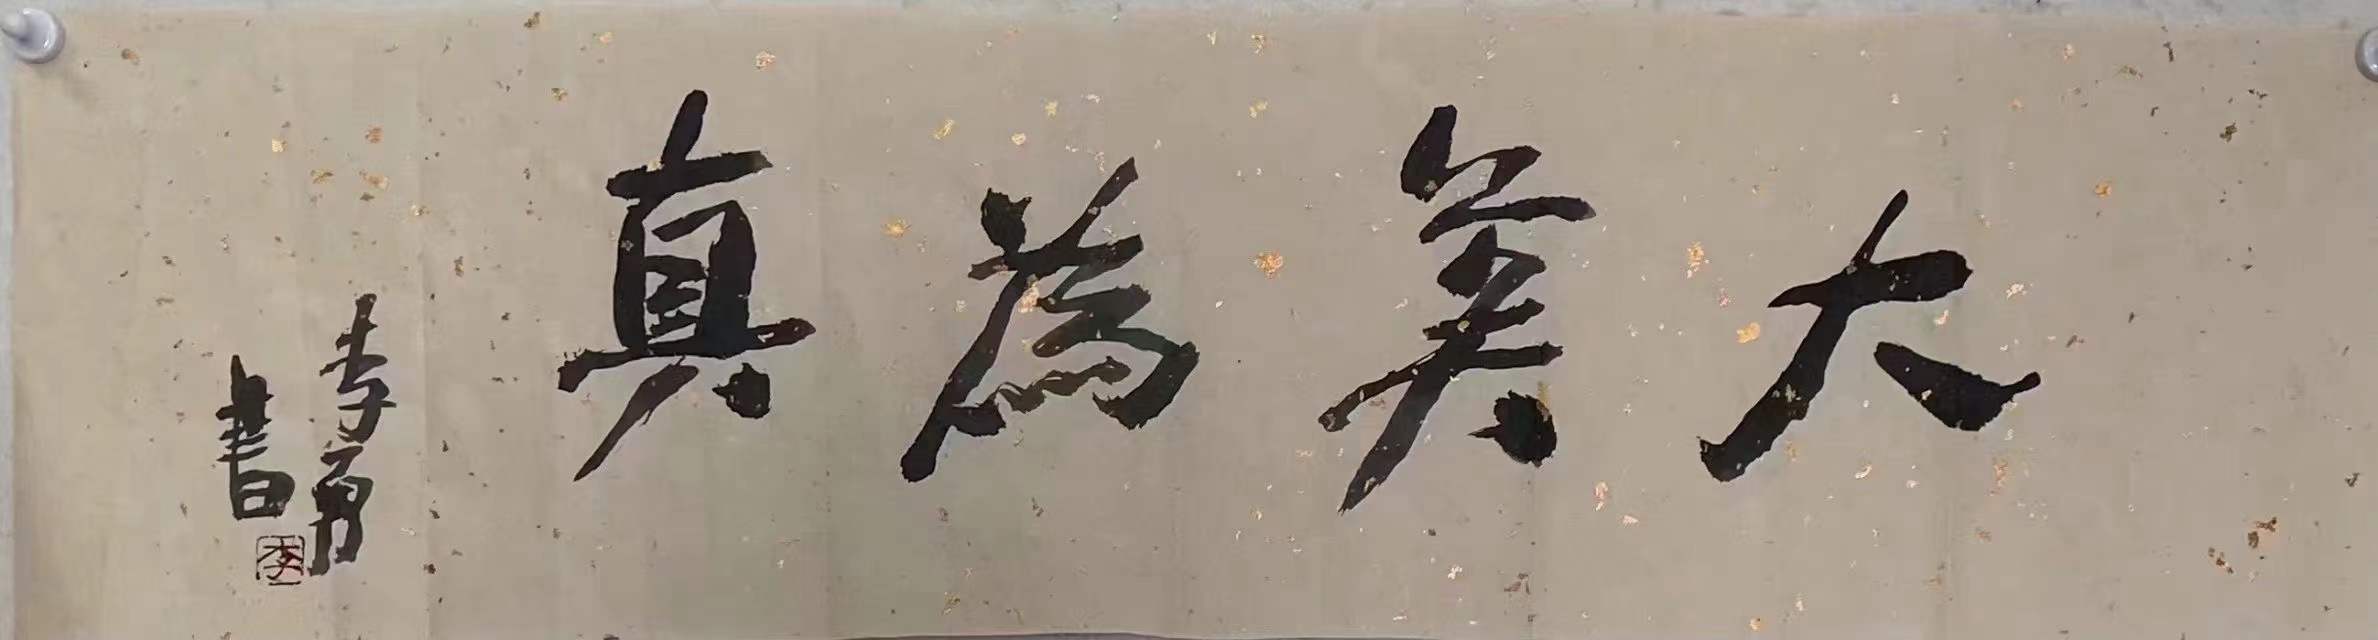 大美為真
李勇
書
李